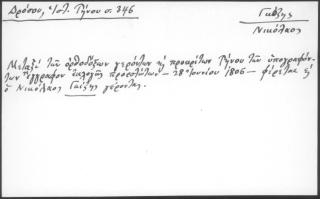 Δρόσου, Ἱστ. Τήνου σ. 346
Γαΐζης
Νικόλαος
Μεταξὺ τῶν ὀρθοδόξων γερόντων κὴ προκρίτων Τήνου τῶν ὑπογραφόν-
των ἔγγραφον ἐκλογῆς προεστώτων – 28 Ἰουνίου 1806 – φέρεται κὴ
ὁ Νικόλαος Γαΐζης γέροντας.